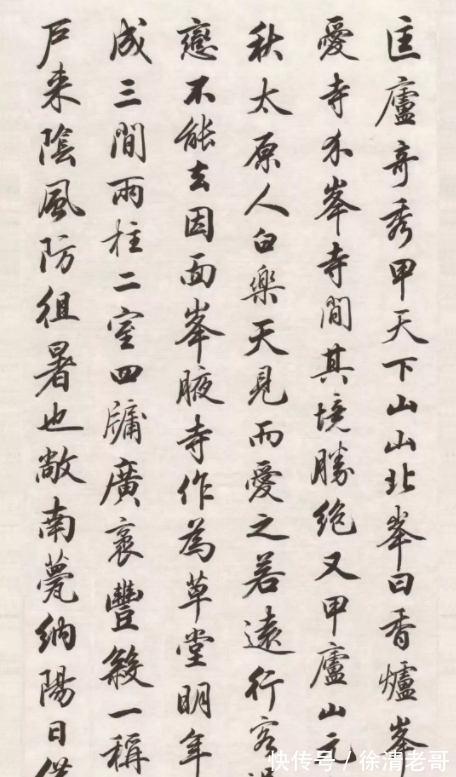 匡廬奇秀甲天下山山北峯曰香爐峯
愛寺介峯寺間其境勝絶又甲廬山元
秋太原人白樂天見而愛之若遠行客
戀不能去因面峯腋寺作為草堂明年
成三間兩柱二室四牖廣袤豐殺一稱
戶来陰風防徂暑也敞南甍納陽日
快传号/徐渭老哥